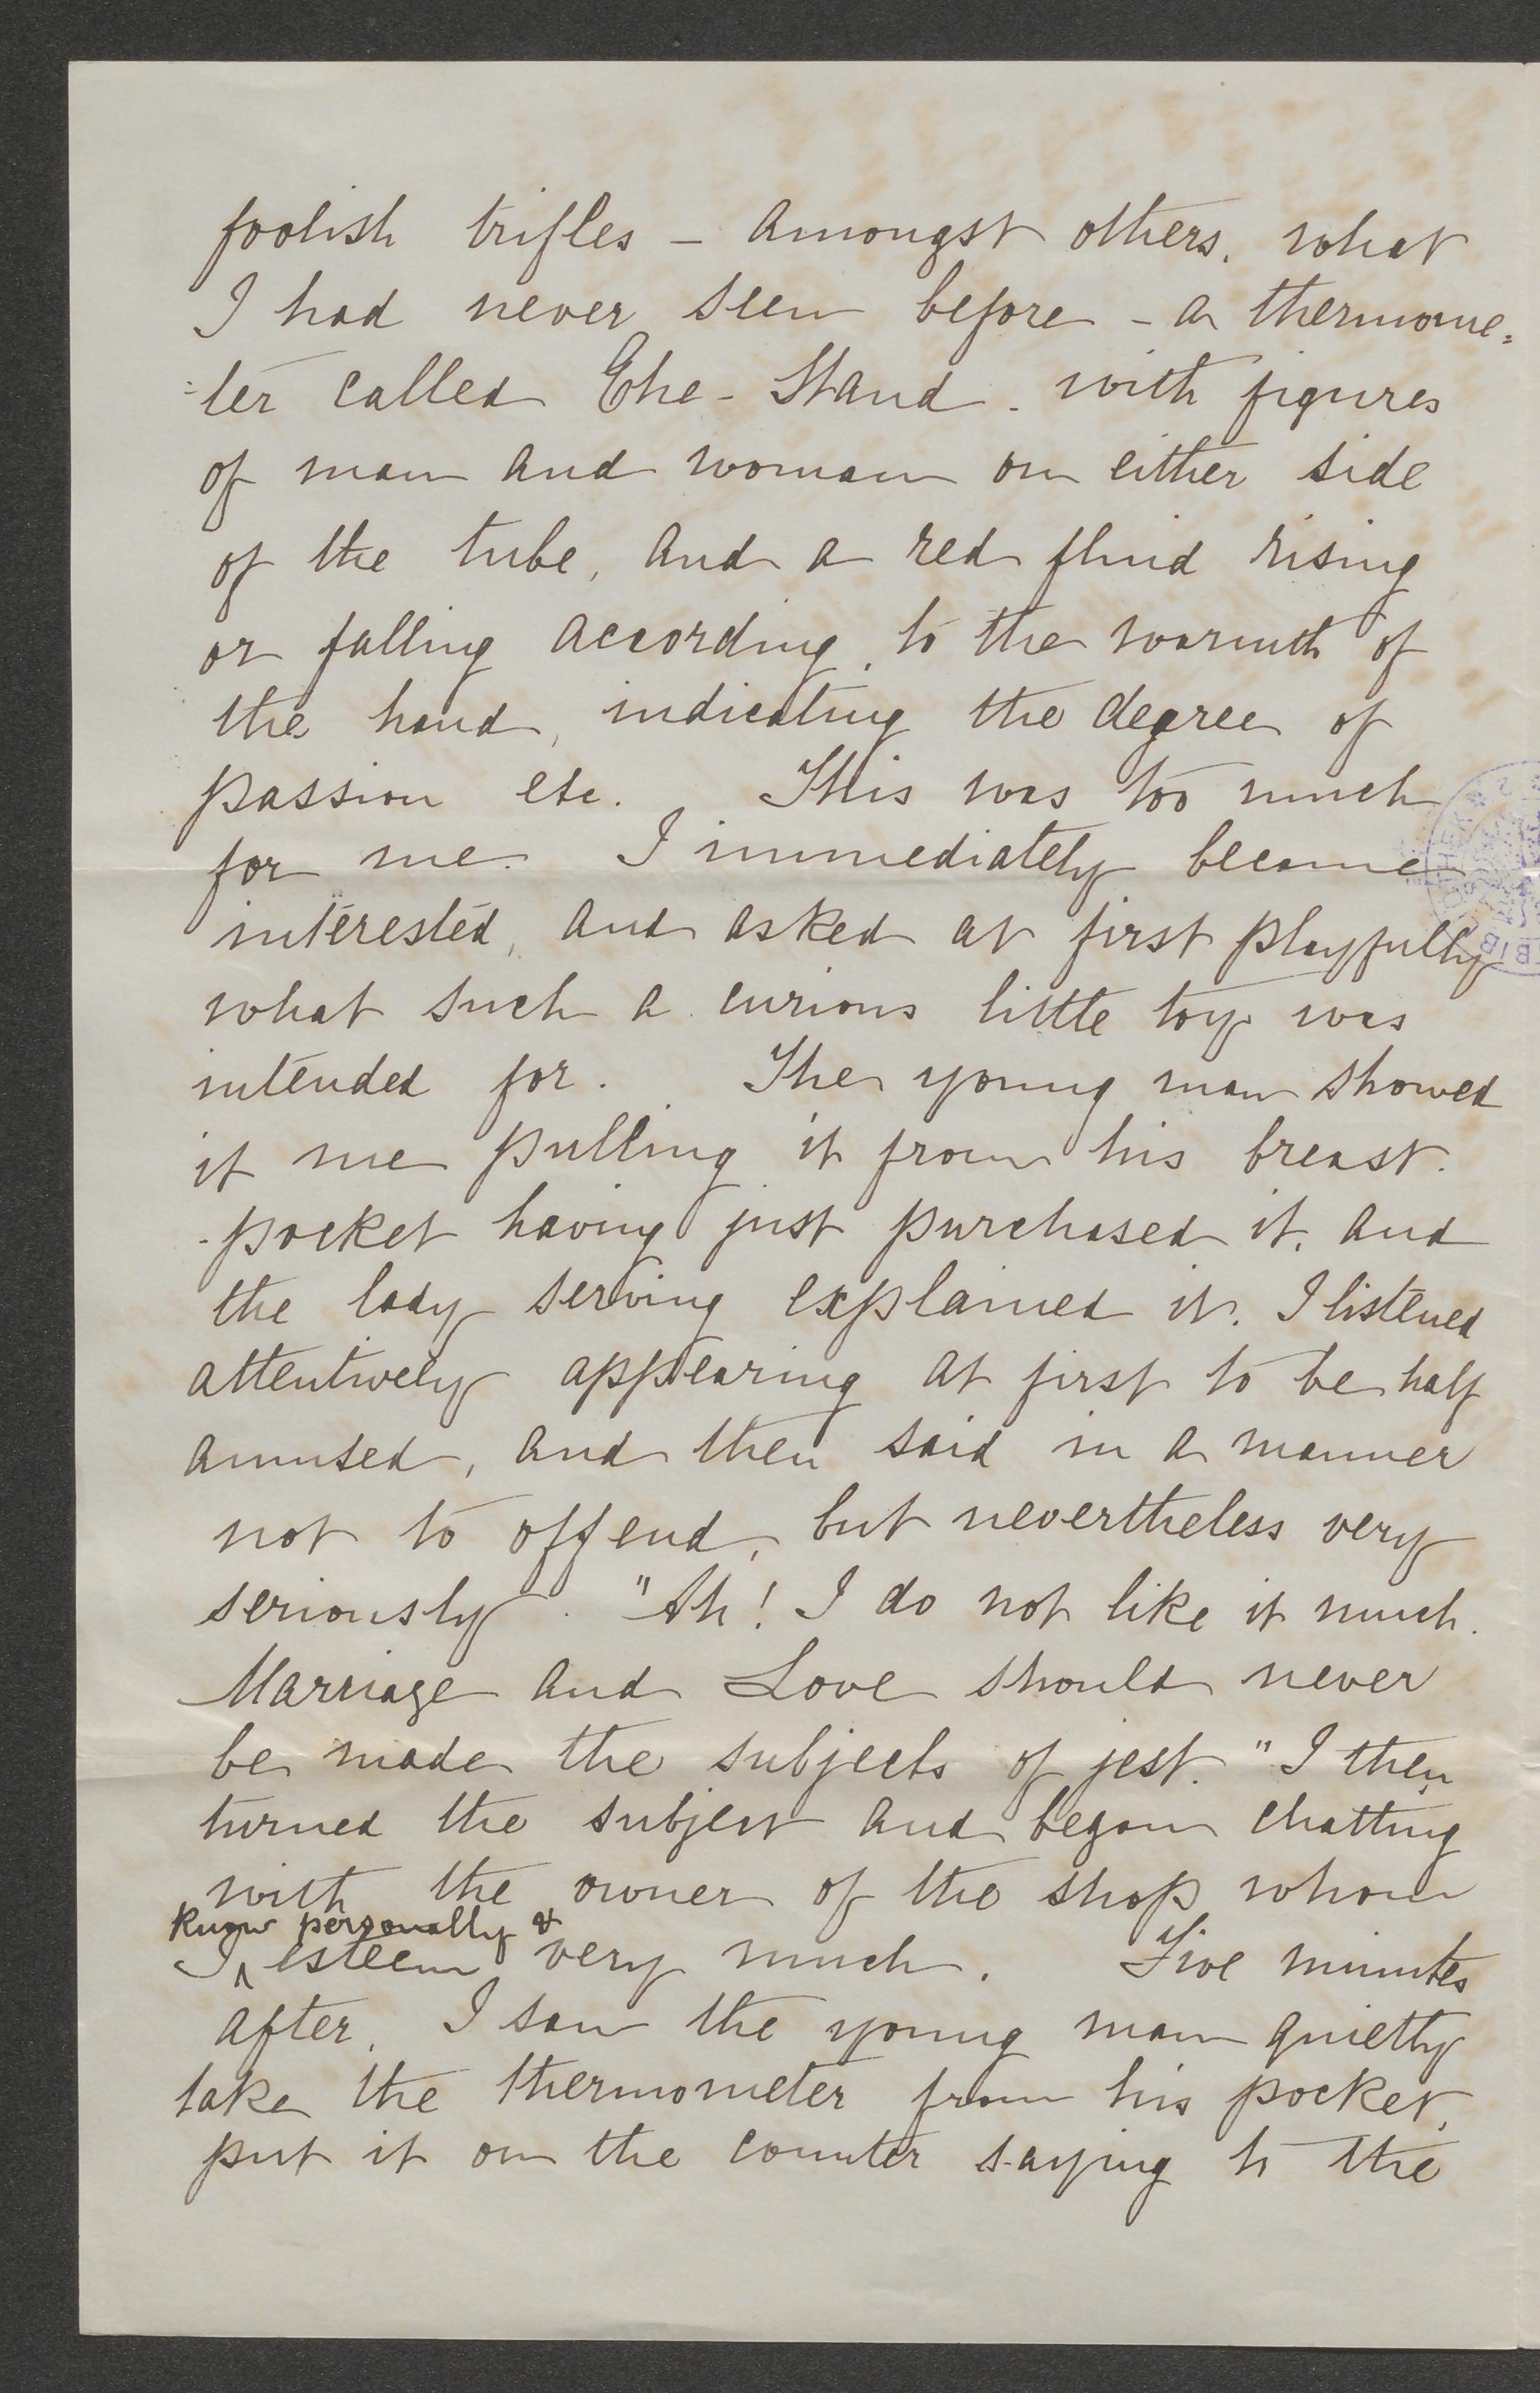 foolish trifles – amongst others, what
I had never seen before – a thermome=
=ter called Ehe-Stand. with figures
of man and woman on either side
of the tube, and a red fluid rising
or falling according, to the warmth of
the hand, indicating the degree of
passion etc. This was too much
for me. I immediately became
interested, and asked at first playfully
what such a curious little toy was
intended for. The young man showed
it me pulling it from his breast-
-pocket having just purchased it, and
the lady serving explained it. I listened
attentively appearing at first to be half
amused, and then said in a manner
not to offend, but nevertheless very
seriously. "Ah! I do not like it much.
Marriage and Love should never
be made the subjects of jest." I then
turned the subject and began chatting
with the owner of the shop whom
know personally &
I ^ esteem very much. Five minutes
after, I saw the young man quietly
take the thermometer from his pocket,
put it on the counter saying to the